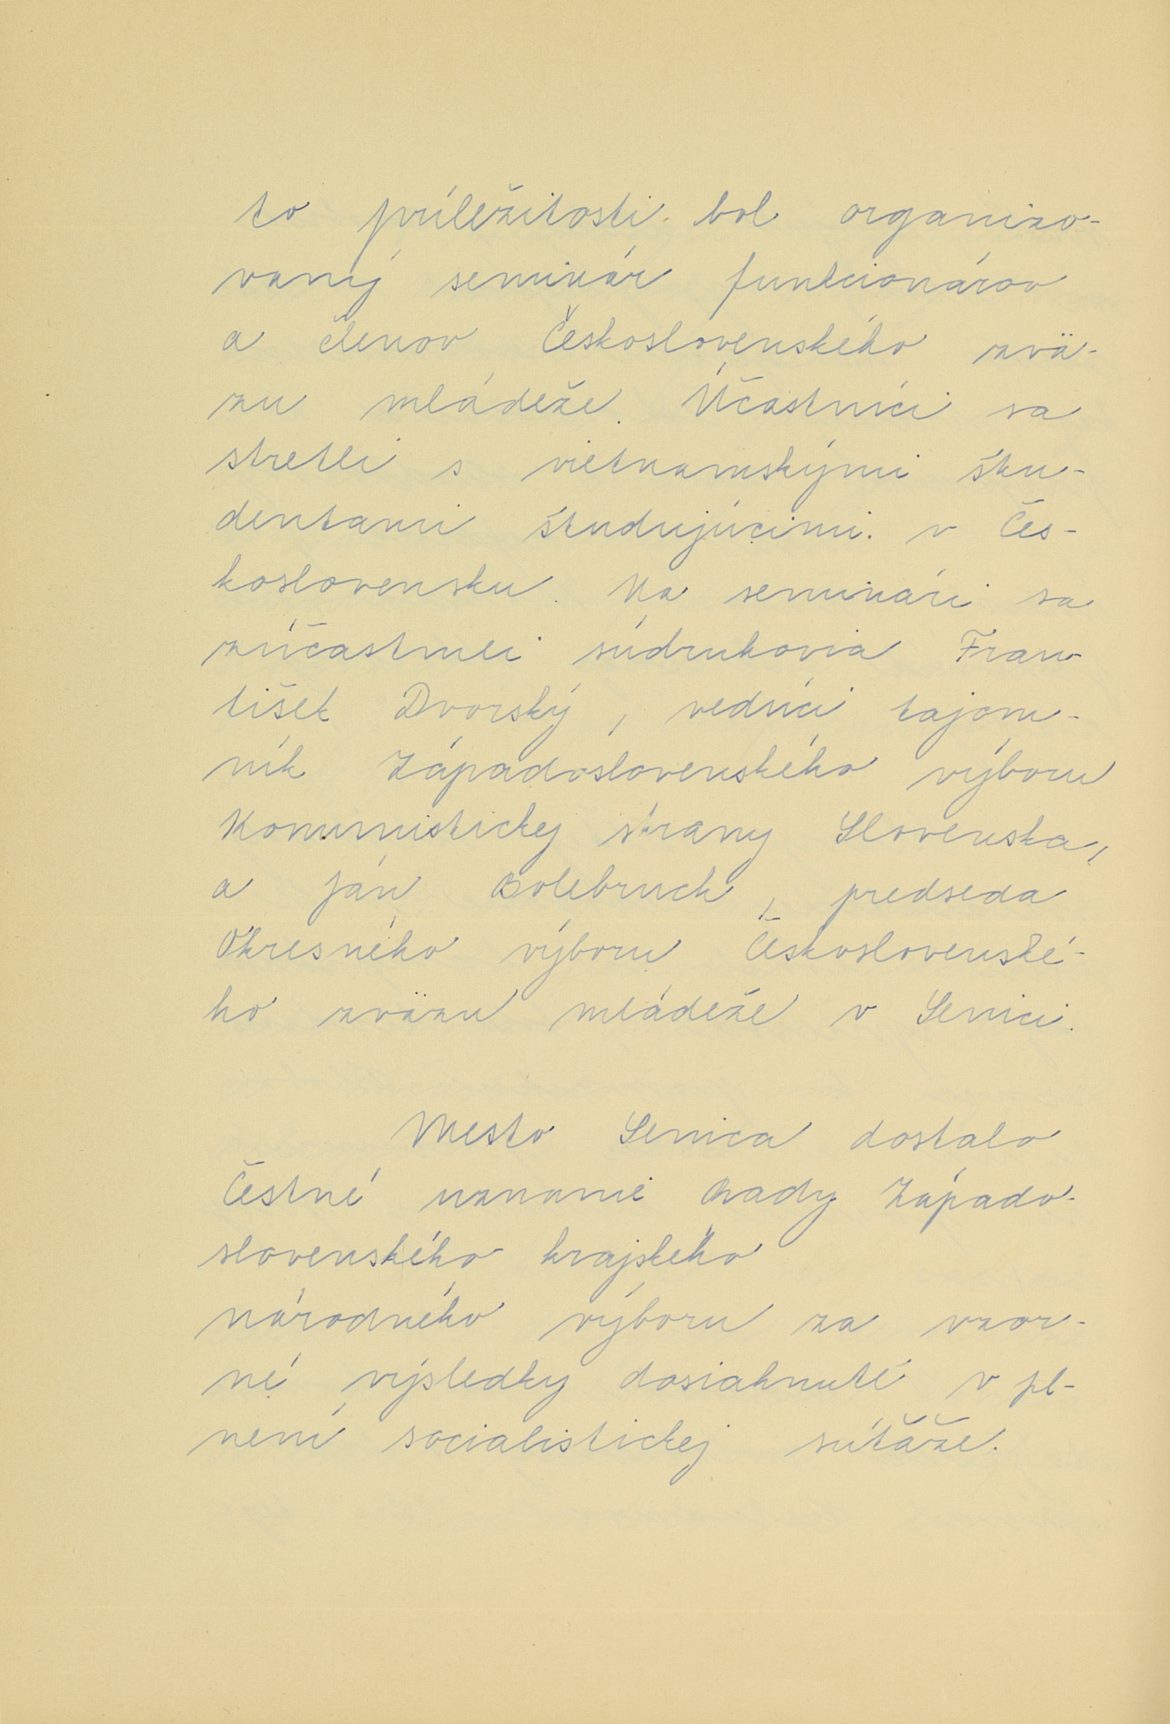 to príležitosti bol organizo-
vaný seminár funkcionárov
a členov Československého zvä-
zu mládeže. Účastníci sa
stretli s vietnamskými štu-
dentami študujúcimi v Čes-
koslovensku. Na seminári sa
zúčastnili súdruhovia Fran-
tišek Dvorský, vedúci tajom-
ník Západoslovenského výboru
Komunistickej strany Slovenska,
a Ján Bolebruch, predseda
Okresného výboru Československé-
ho zväzu mládeže v Senici.
Mesto Senica dostalo
Čestné uznanie Rady Západo-
slovenského krajského
národného výboru za vzor-
né výsledky dosiahnuté v pl-
není socialistickej súťaže.